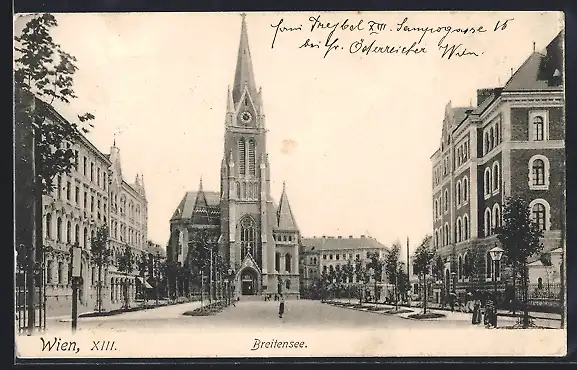 Jani Treybel XIII. Sampogasse 15
bei Fr. Österreicher Wien.
Wien, XIII.
Breitensee.